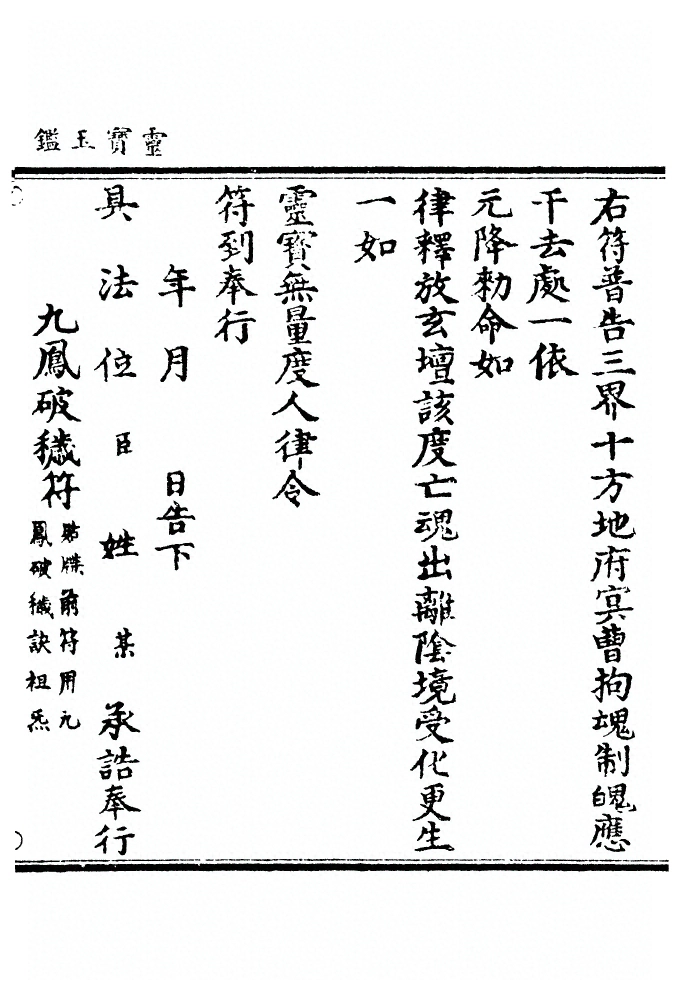 靈寶玉鑑
右符普告三界十方地府㝠曹拘魂制魄應
干去處一依
元降勑命如
律釋放玄壇該度亡魂出離陰境受化更生
一如
靈寶無量度人律令
符到奉行
年月 日告下
具法位臣姓某承誥奉行
九鳳破穢符
貼牒前符用九
鳳破穢訣祖炁